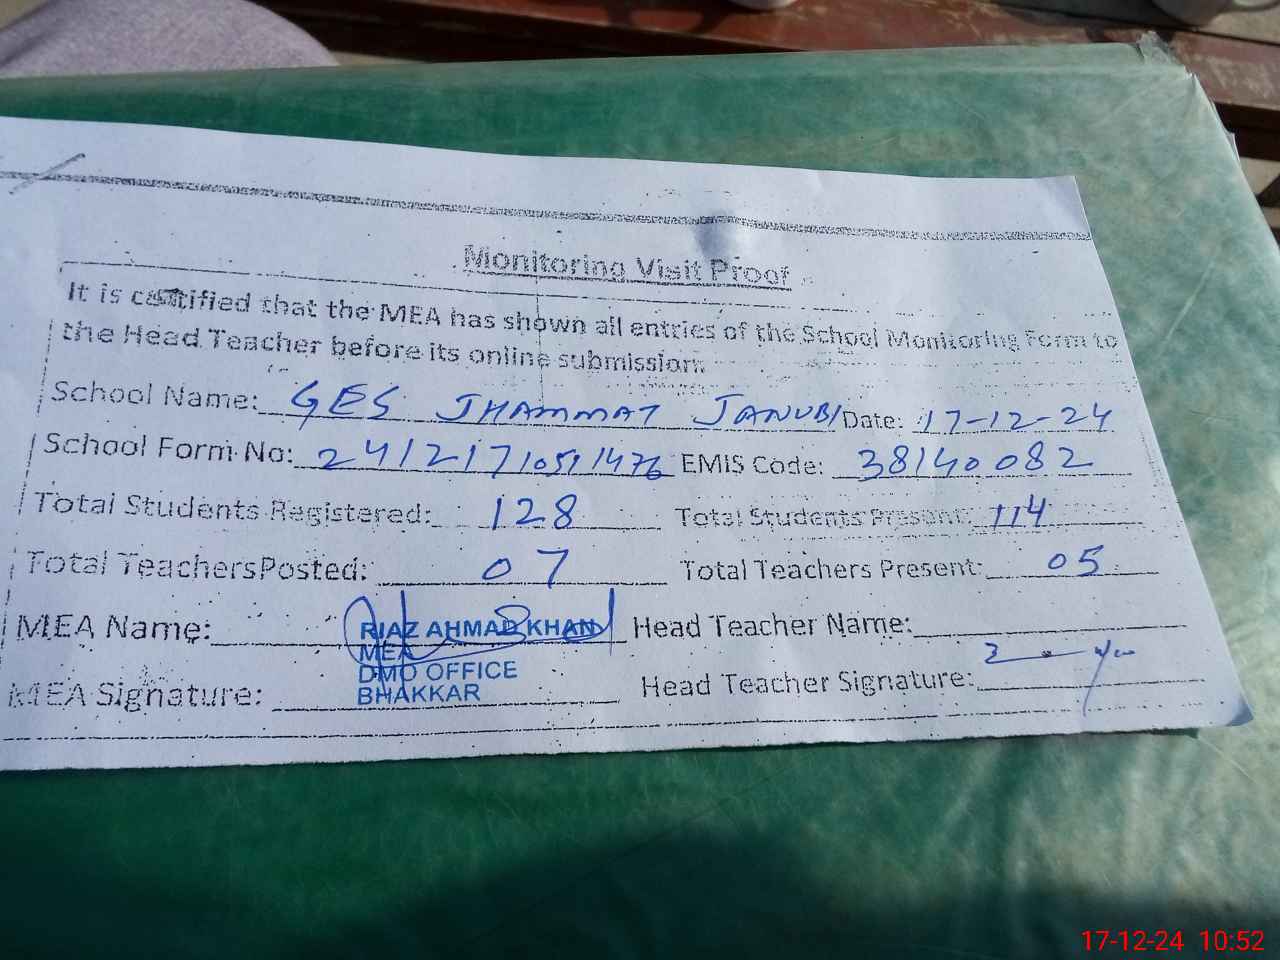 Monitoring Visit Proof
It is certified that the MEA has shown all entries of the School Monitoring Form to
the Head Teacher before its online submission.
School Name: GES JHAMMAT JANUBI Date: 17-12-24
School Form No: 241217105911476 EMIS Code: 38140082
Total Students Registered: 128 Total Students Present: 114
Total Teachers Posted: 07 Total Teachers Present: 05
MEA Name: RIAZ AHMAD KHAN Head Teacher Name:
MEA
DMO OFFICE
BHAKKAR
MEA Signature: Head Teacher Signature:
17-12-24 10:52